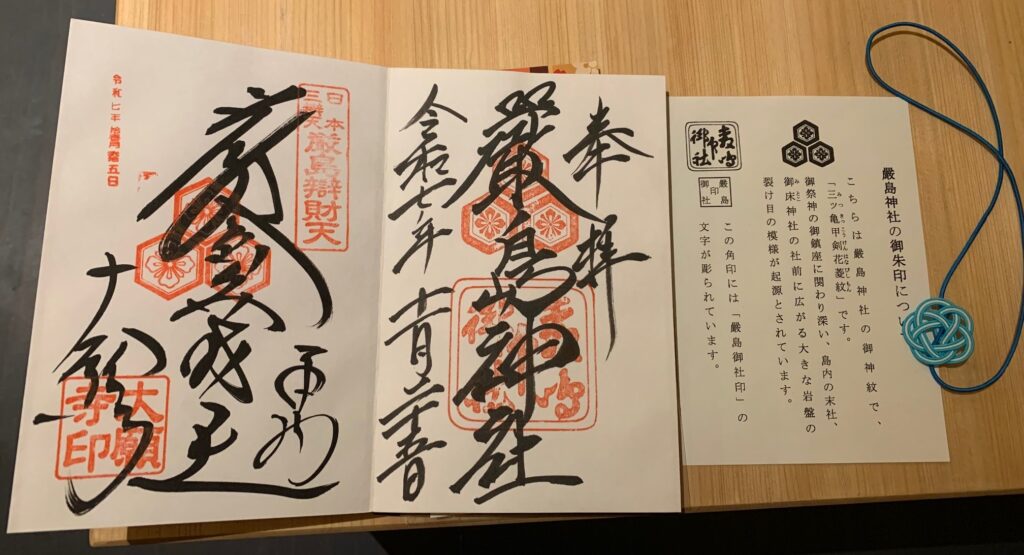 嚴島神社の御朱印につい
こちらは嚴島神社の御神紋で、
「三ツ亀甲剣花菱紋」です。
御祭神の御鎮座に関わり深い、島内の末社、
御床神社の社前に広がる大きな岩盤の
裂け目の模様が起源とされています。
嚴島
御社印
この角印には「嚴島御社印」の
文字が彫られています。
奉拝
嚴島神社
令和七年十一月二十五日
日本
三
嚴島辯財天
大願
寺印
令和七年
五日